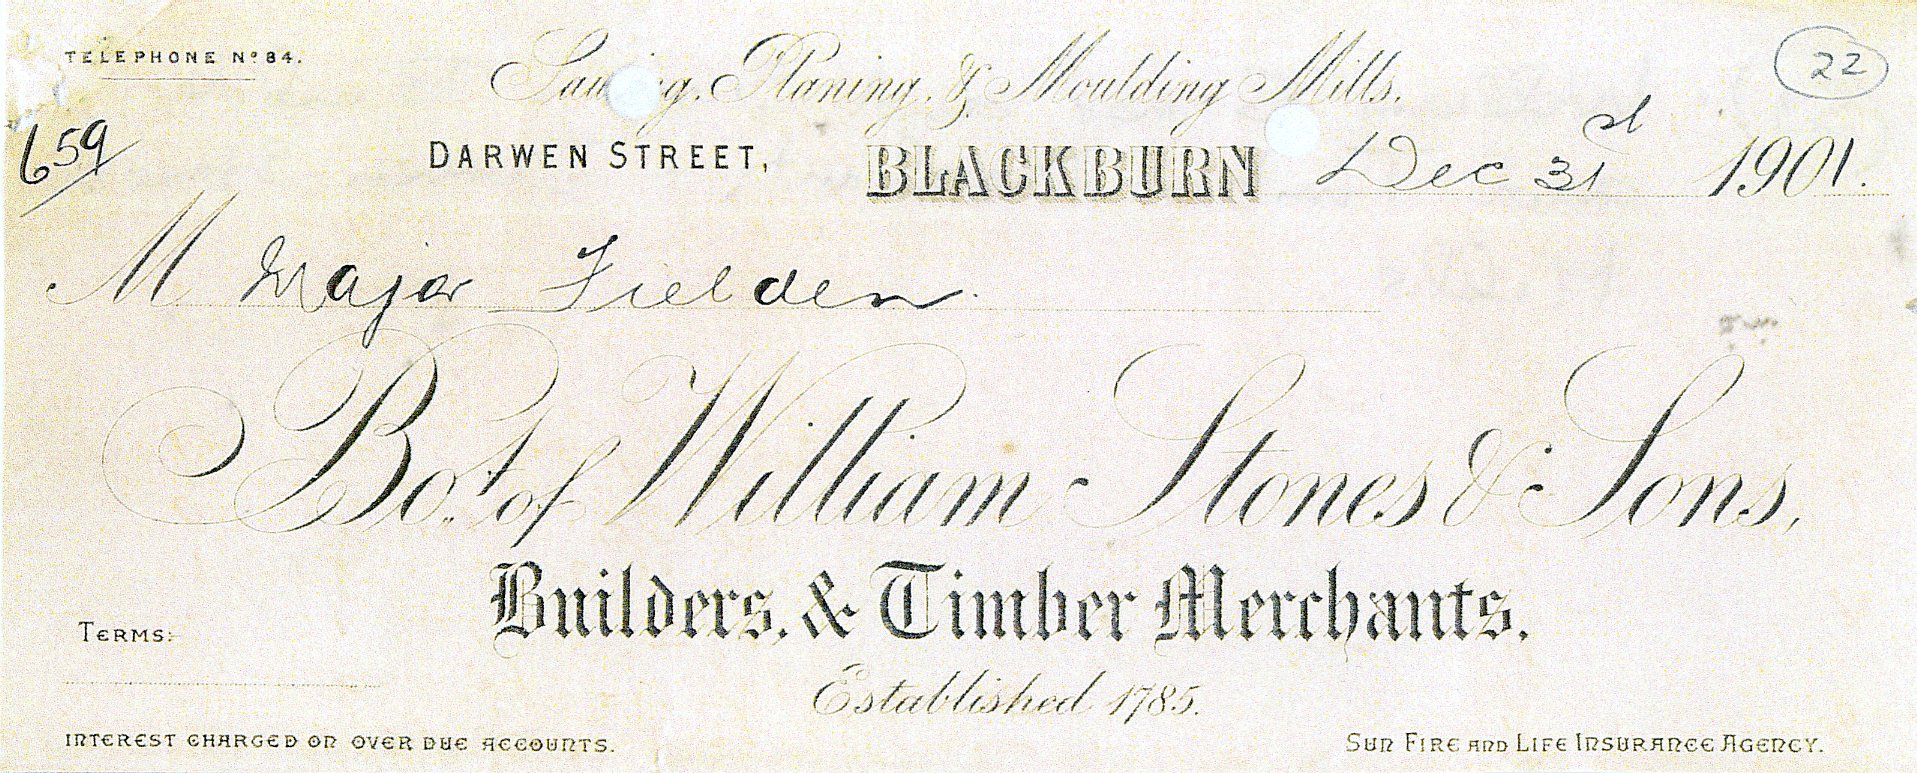 TELEPHONE Nº 84.
Sawing, Planing, & Moulding Mills.
22
659
DARWEN STREET, BLACKBURN Dec 31st 1901.
M Major Fielden.
Bo.t of William Stones & Sons,
Builders, & Timber Merchants.
TERMS:
Established 1785.
INTEREST CHARGED ON OVER DUE ACCOUNTS.
SUN FIRE AND LIFE INSURANCE AGENCY.